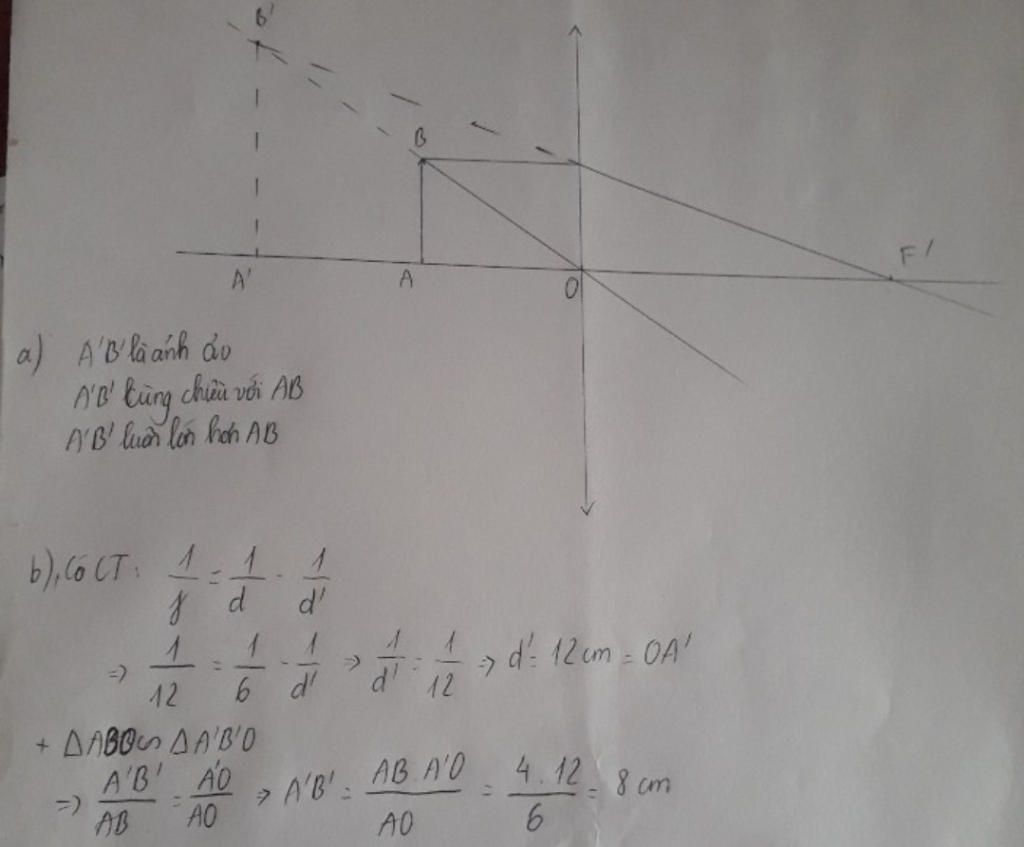 B'
B
A' A O F'
a) A'B' là ảnh ảo
A'B' cùng chiều với AB
A'B' luôn lớn hơn AB
b), Có CT: 1/f = 1/d - 1/d'
=> 1/12 = 1/6 - 1/d' => 1/d' = 1/12 => d' = 12 cm = OA'
+ ΔABO ∽ ΔA'B'O
=> A'B'/AB = A'O/AO => A'B' = AB.A'O/AO = 4.12/6 = 8 cm